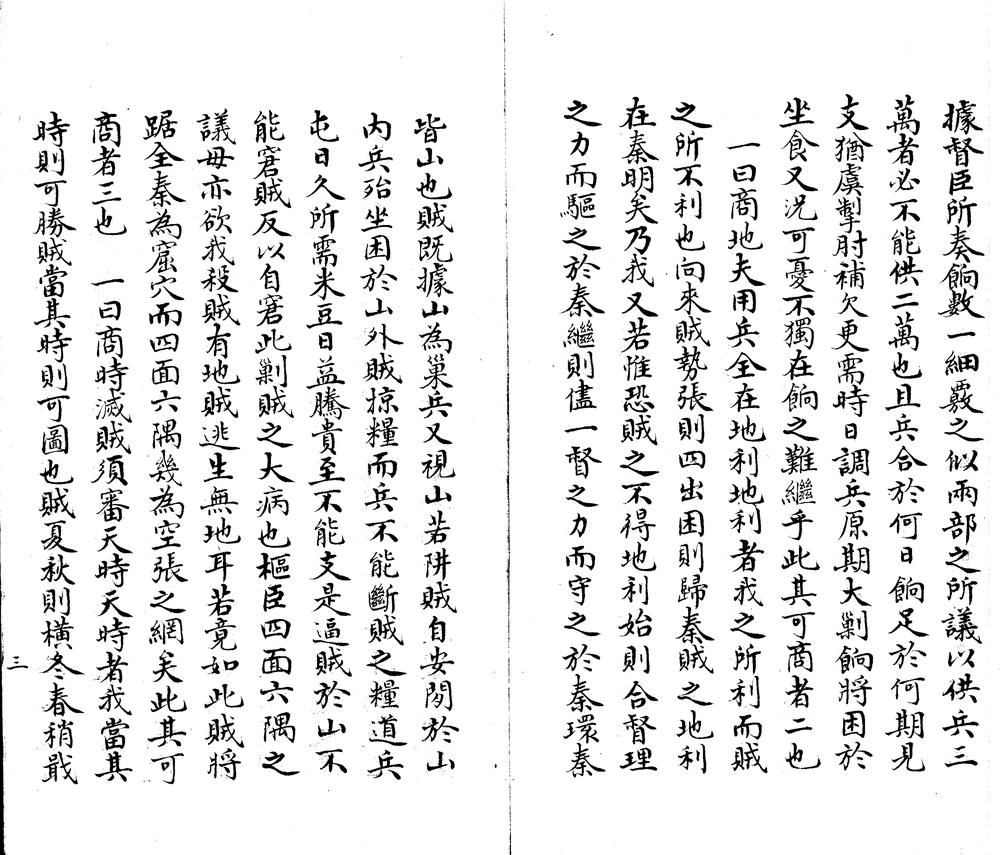 據督臣所奏餉數一細覈之似兩部之所議以供兵三
萬者必不能供二萬也且兵合於何日餉足於何期見
支猶虞掣肘補欠更需時日調兵原期大剿餉將困於
坐食又況可憂不獨在餉之難繼乎此其可商者二也
一曰商地夫用兵全在地利地利者我之所利而賊
之所不利也向來賊勢張則四出困則歸秦賊之地利
在秦明矣乃我又若惟恐賊之不得地利始則合督理
之力而驅之於秦繼則儘一督之力而守之於秦環秦
皆山也賊既據山為巢兵又視山若阱賊自安閒於山
内兵殆坐困於山外賊掠糧而兵不能斷賊之糧道兵
屯日久所需米豆日益騰貴至不能支是逼賊於山不
能窘賊反以自窘此剿賊之大病也樞臣四面六隅之
議毋亦欲我殺賊有地賊逃生無地耳若竟如此賊將
踞全秦為窟穴而四面六隅幾為空張之網矣此其可
商者三也　一曰商時滅賊須審天時天時者我當其
時則可勝賊當其時則可圖也賊夏秋則橫冬春稍戢
三